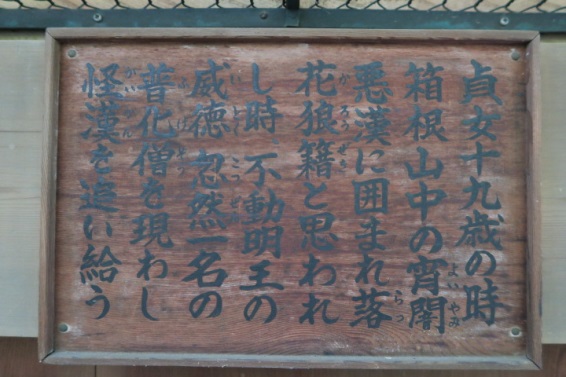 貞女十九歳の時
箱根山中の宵闇
悪漢に囲まれ落
花狼籍と思われ
し時 不動明王の
威徳 忽然一名の
普化僧を現わし
怪漢を追い給う